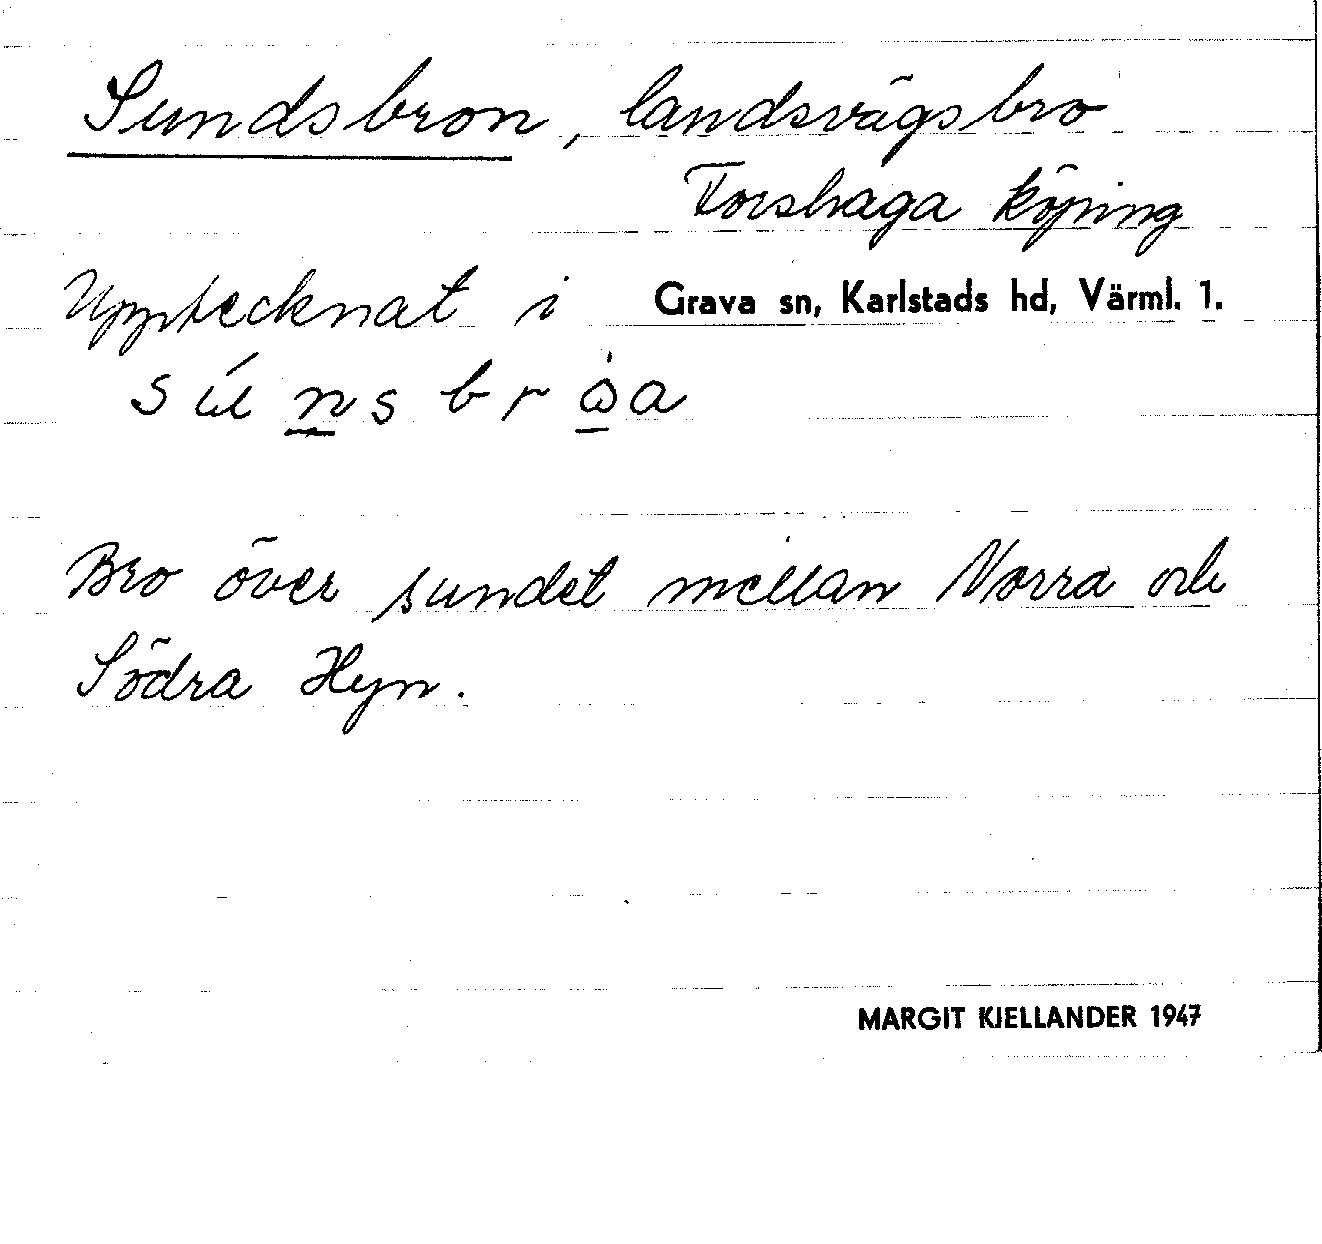 Sundsbron, landsvägsbro
Forshaga köping
Upptecknat i Grava sn, Karlstads hd, Värml. l.
Bro över sundet mellan Norra och
Södra Hyn.
MARGIT KJELLANDER 1947